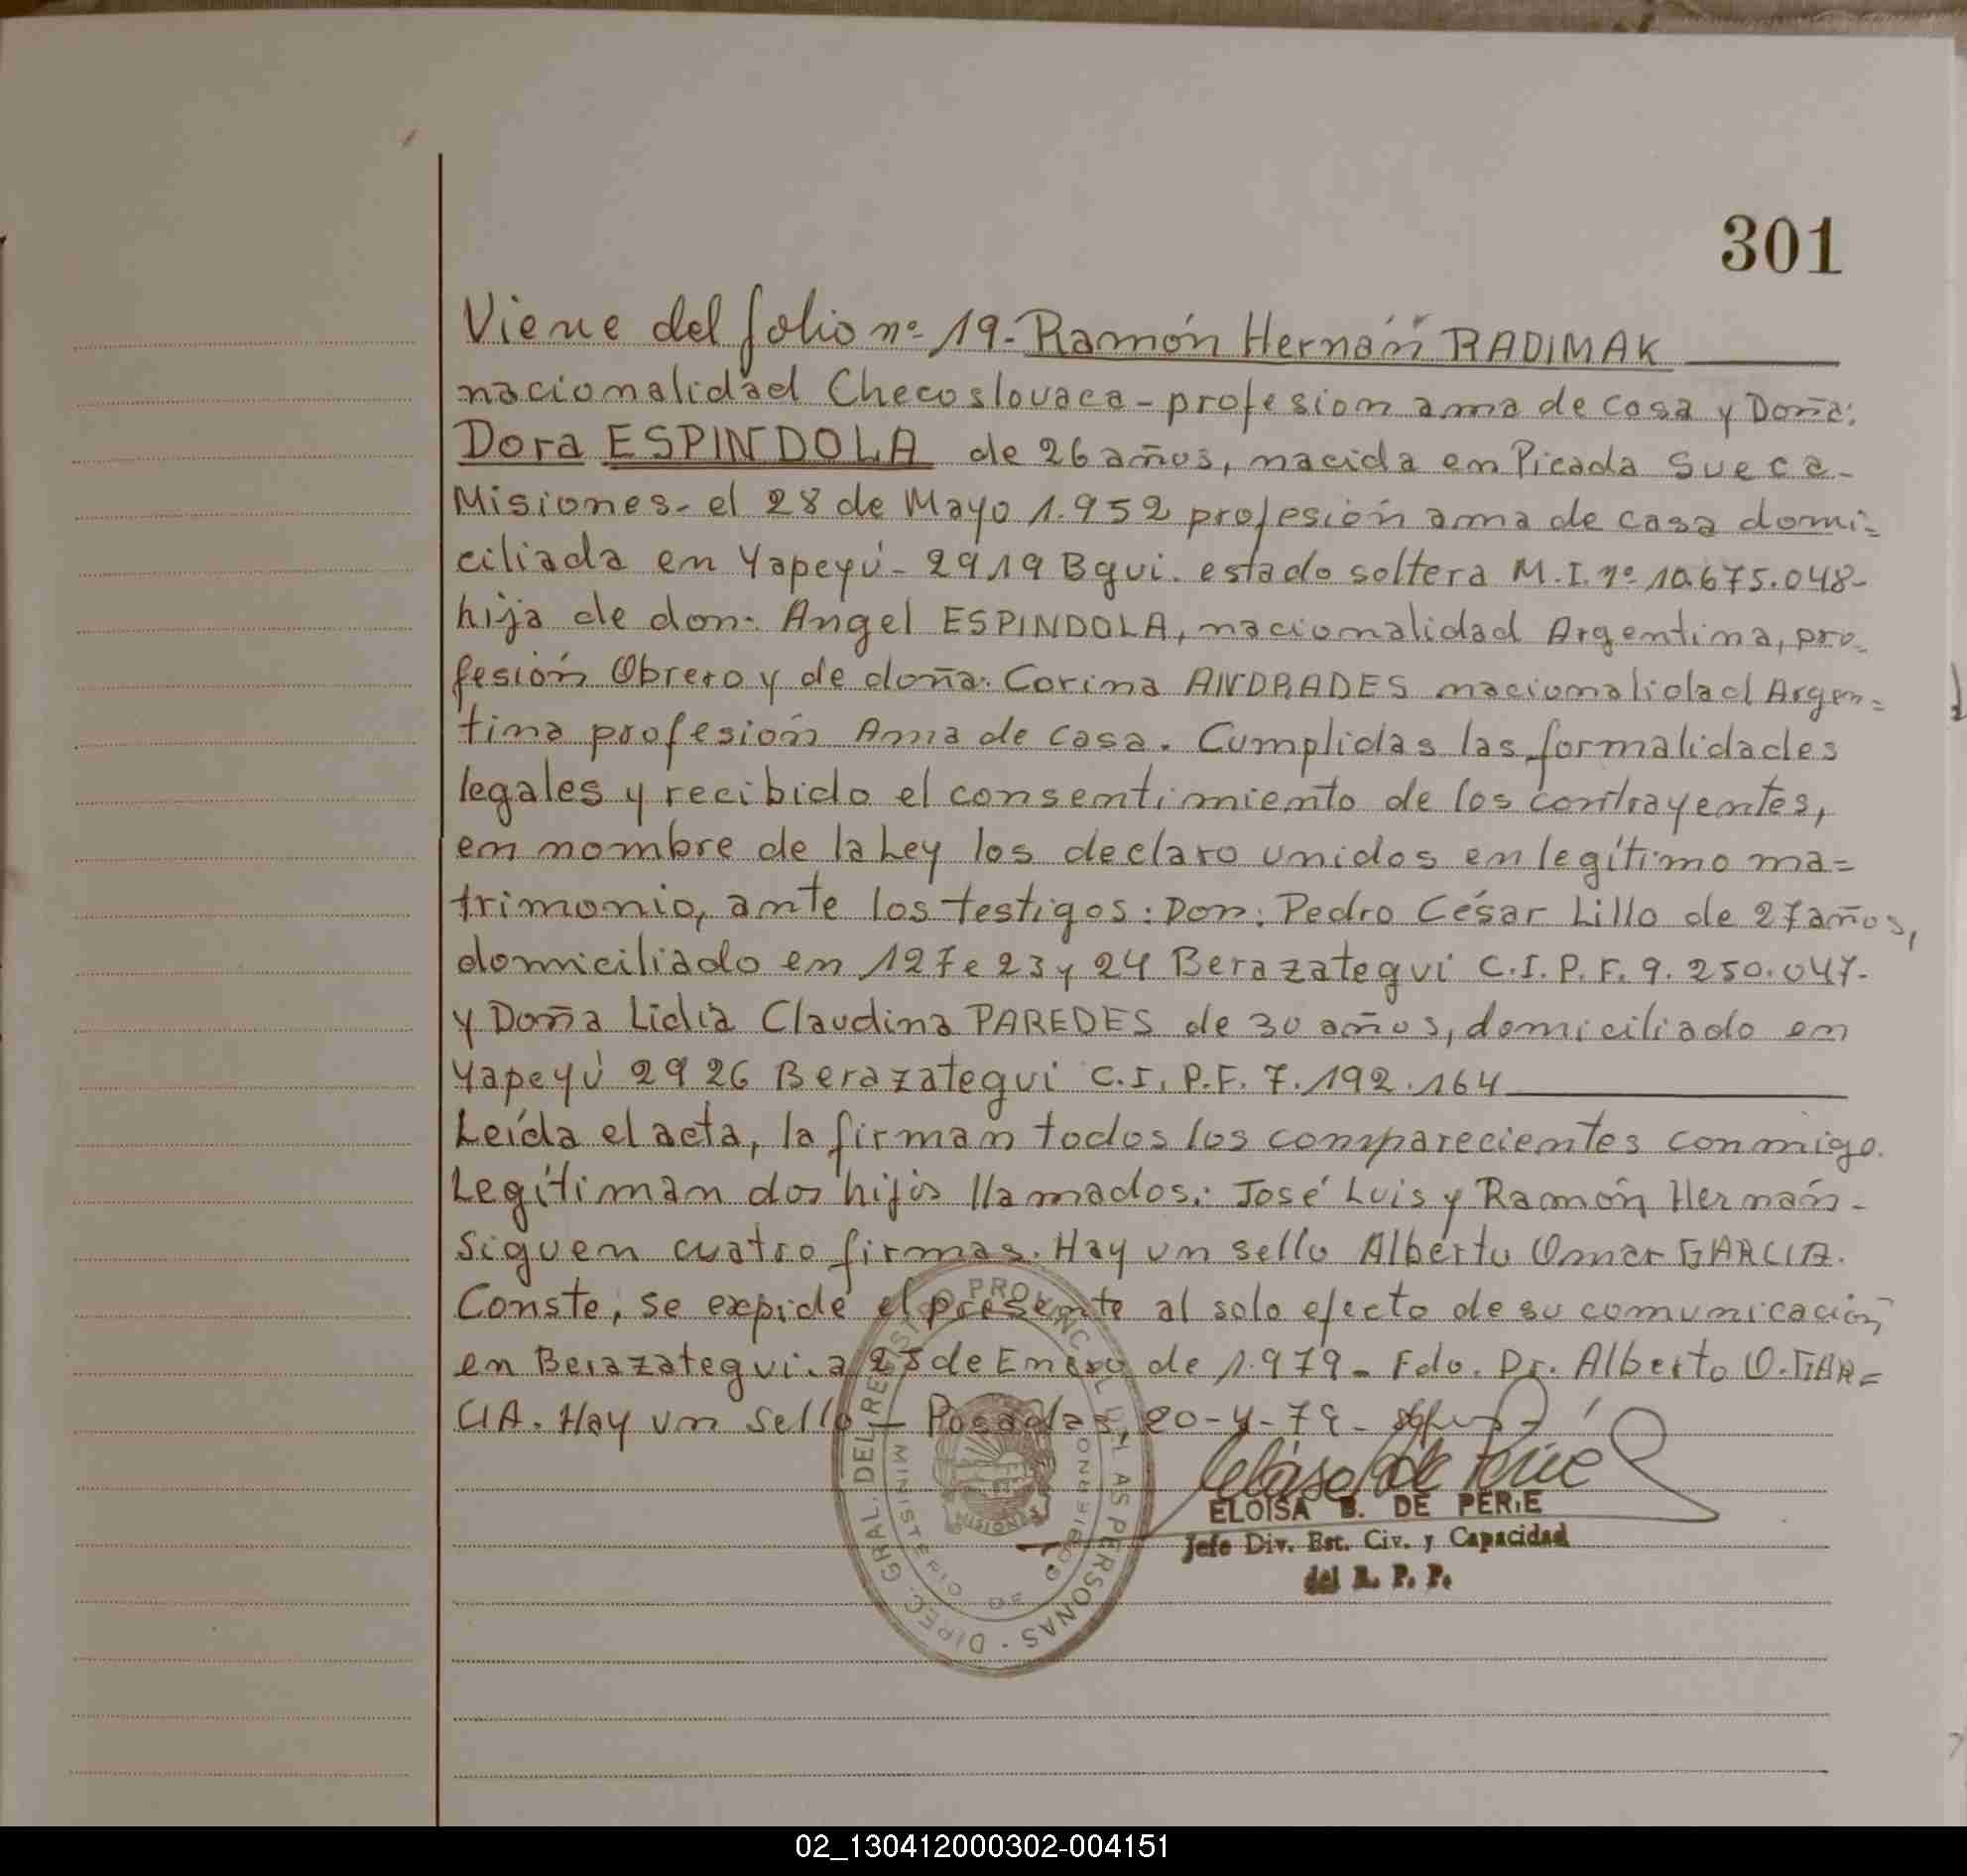 301
Viene del folio nº 19- Ramón Hernán RADIMAK
nacionalidad Checoslovaca - profesion ama de casa y Doña:
Dora ESPINDOLA de 26 años, nacida en Picada Sueca-
Misiones- el 28 de Mayo 1.952 profesión ama de casa domi=
ciliada en Yapeyú - 2919 Bgui. estado soltera M.I. nº 10.675.048-
hija de don: Angel ESPINDOLA, nacionalidad Argentina, pro-
fesión Obrero y de doña: Corina ANDRADES nacionalidad Argen=
tina profesión Ama de casa. Cumplidas las formalidades
legales y recibido el consentimiento de los contrayentes,
en nombre de la Ley los declaro unidos en legítimo ma=
trimonio, ante los testigos: Don: Pedro César Lillo de 27 años,
domiciliado en 127 e 23 y 24 Berazategui C.I.P.F. 9.250.047-
y Doña Lidia Claudina PAREDES de 30 años, domiciliado en
Yapeyú 2926 Berazategui C.I.P.F. 7.192.164
Leída el acta, la firman todos los comparecientes conmigo.
Legítiman dos hijos llamados: José Luis y Ramón Hernán-
Siguen cuatro firmas. Hay un sello Alberto Omar GARCIA.
Conste, se expide el presente al solo efecto de su comunicación
en Berazategui a 25 de Enero de 1.979- Fdo. Dr. Alberto O. GAR=
CIA. Hay un sello - Posadas, 20-4-79-
ELOISA B. DE PERIE
Jefe Div. Est. Civ. y Capacidad
del R. P. P.
DIREC. GRAL. DEL REGISTRO PROVINCIAL DE LAS PERSONAS
MINISTERIO DE GOBIERNO
MISIONES
02_130412000302-004151